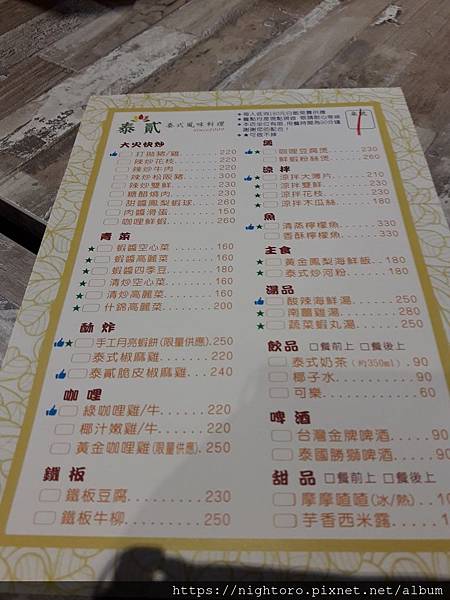 泰貳 泰式風味料理
since2009
大火快炒
打拋豬/雞 220
辣炒花枝 220
辣炒牛肉 220
辣炒松阪豬 300
辣炒雙鮮 230
糖醋燒肉 230
甜醬鳳梨蝦球 260
肉醬滑蛋 150
咖哩鮮蝦 260
青菜
蝦醬空心菜 160
蝦醬高麗菜 160
蝦醬四季豆 180
清炒空心菜 160
清炒高麗菜 160
什錦高麗菜 200
酥炸
手工月亮蝦餅(限量供應).250
泰式椒麻雞 220
泰貳脆皮椒麻雞 240
咖哩
綠咖哩雞/牛 220
椰汁嫩雞/牛 220
黃金咖哩雞(限量供應) 250
鐵板
鐵板豆腐 230
鐵板牛柳 250
桌號
煲
咖哩豆腐煲 230
鮮蝦粉絲煲 260
涼拌
涼拌大薄片 210
涼拌雙鮮 230
涼拌花枝 230
涼拌木瓜絲 180
魚
清蒸檸檬魚 330
香酥檸檬魚 330
主食
黃金鳳梨海鮮飯 180
泰式炒河粉 180
湯品
酸辣海鮮湯 250
南薑雞湯 280
蔬菜蝦丸湯 250
飲品 □餐前上 □餐後上
泰式奶茶(約350ml) 90
椰子水 80
可樂 60
啤酒
台灣金牌啤酒 90
泰國勝獅啤酒 90
甜品 □餐前上 □餐後上
摩摩喳喳(冰/熱)
芋香西米露
https://nightoro.pixnet.net/album